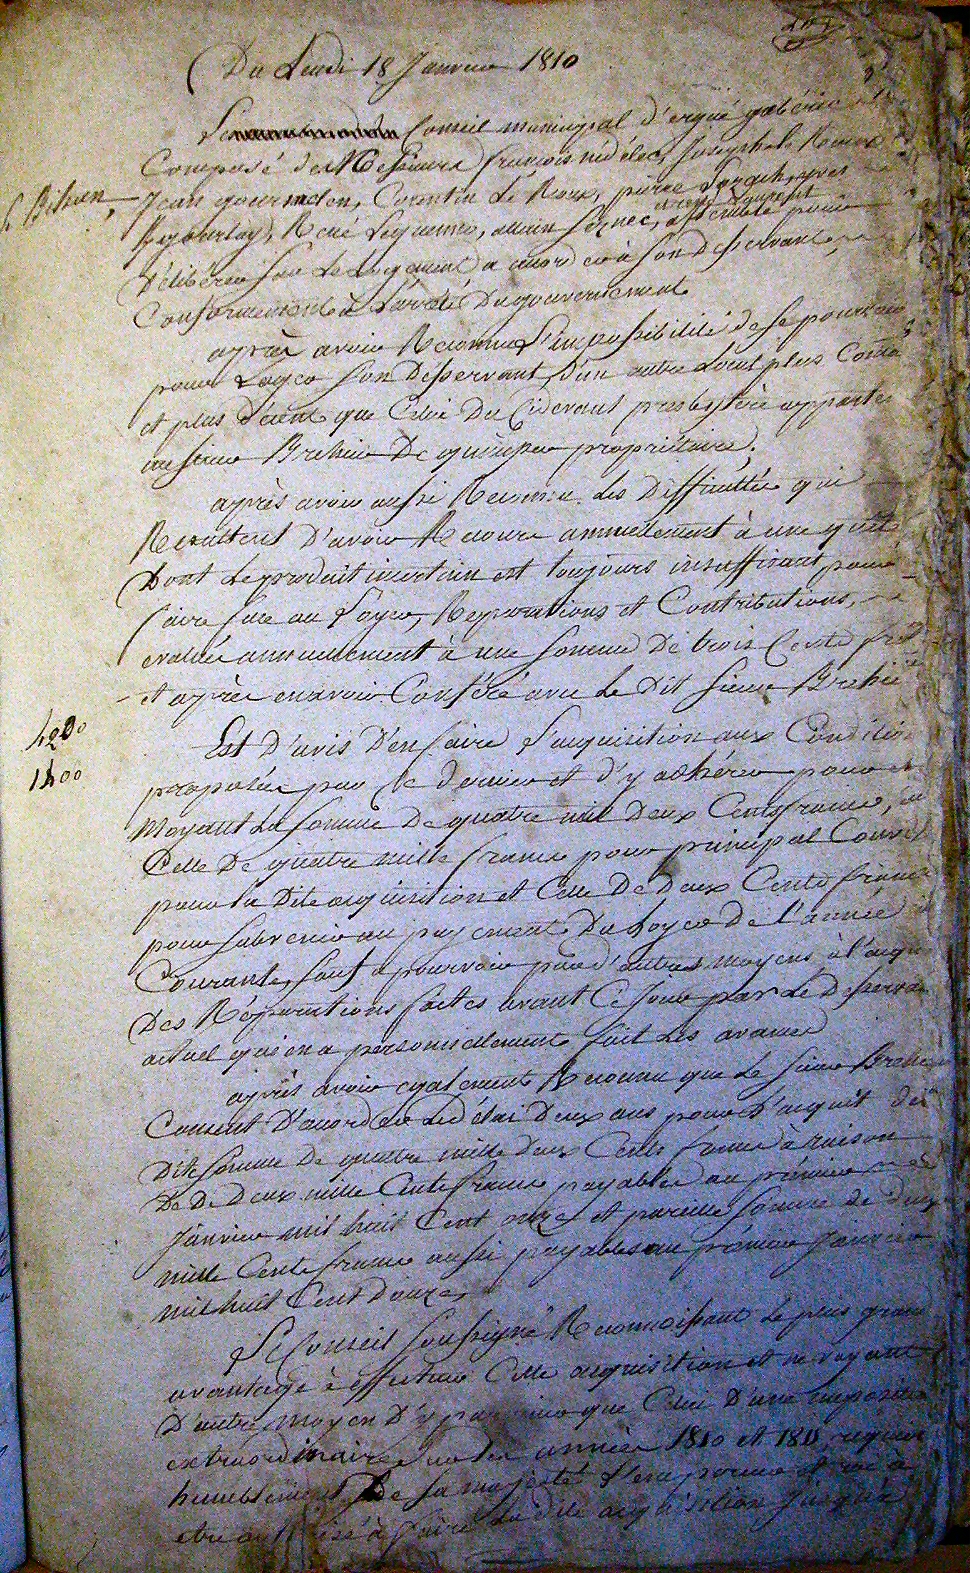 Du Jeudi 18 Janvier 1810
Le Conseil municipal d'ergué gabéric
Composé des Messieurs françois nédélec, Joseph le Roux
Jean gourmelen, Corentin Le Roux, pierre yves
f. Bihan,
René Leguenno, alain Seznec, assemblé pour
délibérer sur Le Logement a accorder à son desservant
Conformement à L'arrêté Du gouvernement
après avoir Reconnu L'impossibilité de se pourvoir
pour Loger son desservant, d'un autre Local plus Comm
et plus décent que Celui Du Cidevant presbytère apparten
au sieur Brehier De quimper propriétaire.
après avoir aussi Reconnu Les Difficultés qui
Résultent D'avoir Recours annuellement à une quête
Dont Le produit incertain est toujours insuffisant pour
faire face au Loyer, Reparations et Contributions,
evalués annuellement à une somme De trois Cents fr
et après en avoir Conféré avec Le Dit sieur Brehier
4200
1400
Est D'avis D'en faire L'acquisition aux Condition
proposées par Ce dernier et d'y adhérer pour
Moyant La somme De quatre mil Deux Cents francs,
Celle De quatre mille francs pour principal
pour La Dite acquisition et Celle De Deux Cents francs
pour subvenir au payement Du Loyer De L'année
Courante, sauf a pourvoir par d'autres moyens à l'acqu
Des Réparations faites avant Ce jour par Le Desserva
actuel qui en a personnellement fait Les avances
après avoir egalement Reconnu que Le sieur Breh
Consent D'accorder un délai Deux ans pour L'acquit des
Dite somme De quatre mille deux Cents francs à raison
De Deux mille Cents francs payables au prémier
Janvier mil huit Cent onze et pareille somme de deux
mille Cents francs aussi payables au prémier Janvier
mil huit Cent Douze,
Le Conseil soussigné Reconnoissant Le plus grand
avantage à effectuer Cette acquisition et ne voyant
D'autre moyen D'y parvenir que Celui D'une imposition
extraordinaire sur Les années 1810 et 1811, requiert
humblement De sa majesté L'empereur et roi à
etre autorisé à faire La dite acquisition jusqu'à